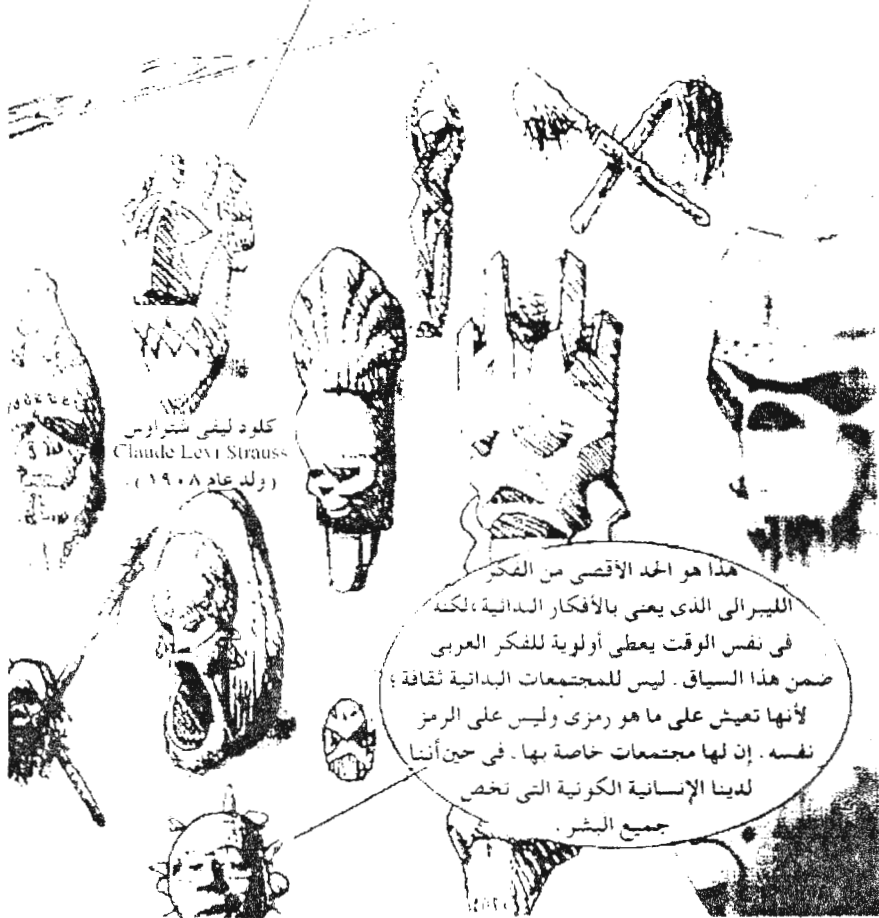 كلود ليفى شتراوس
Claude Levi Strauss
( ولد عام ١٩٠٨ ) .
هذا هو الحد الأقصى من الفكر
الليبرالى الذى يعنى بالأفكار البدائية ،لكنه
فى نفس الوقت يعطى أولوية للفكر العربى
ضمن هذا السياق . ليس للمجتمعات البدائية ثقافة ؛
لأنها تعيش على ما هو رمزى وليس على الرمز
نفسه . إن لها مجتمعات خاصة بها . فى حين أننا
لدينا الإنسانية الكونية التى تخص
جميع البشر .